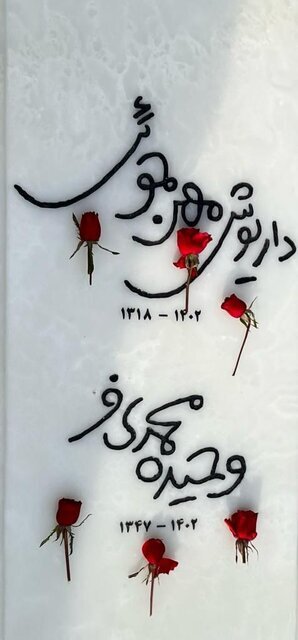 داریوش مهرجوئی
۱۳۱۸ – ۱۴۰۲
وحیده محمدی فر
۱۳۴۷ – ۱۴۰۲